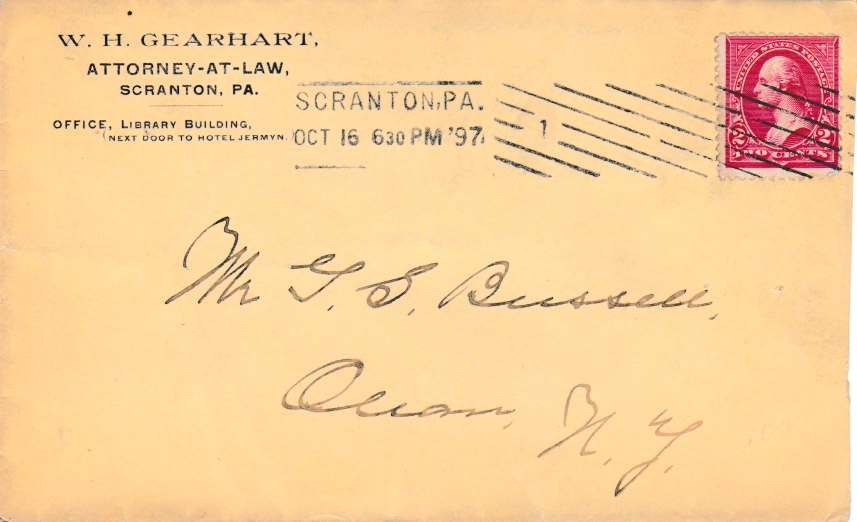 W. H. GEARHART,
ATTORNEY-AT-LAW,
SCRANTON, PA.
OFFICE, LIBRARY BUILDING,
NEXT DOOR TO HOTEL JERMYN.
SCRANTON, PA.
OCT 16 630 PM '97
1
UNITED STATES POSTAGE
2 2
TWO CENTS
Mr G. S. Bussell,
N. Y.